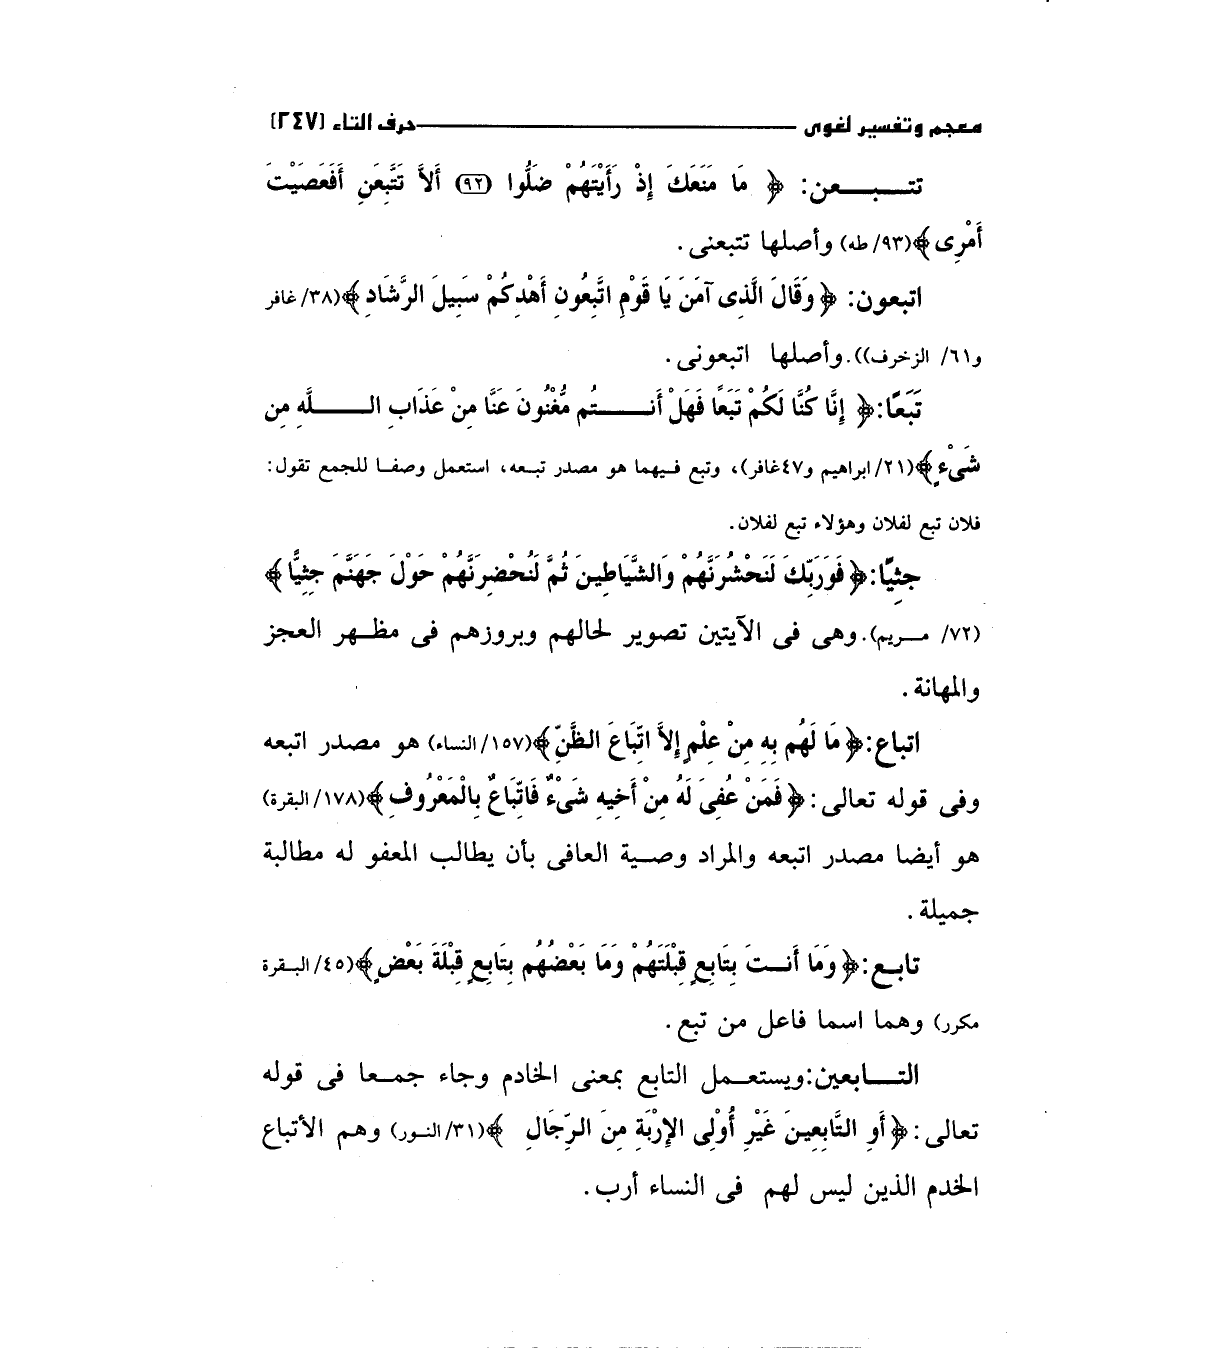 معجم وتفسير لغوى — حرف التاء [٢٤٧]
تتبعن: ﴿ مَا مَنَعَكَ إِذْ رَأَيْتَهُمْ ضَلُّوا (٩٢) أَلاَّ تَتَّبِعَنِ أَفَعَصَيْتَ
أَمْرِى﴾(٩٣/ طه) وأصلها تتبعنى.
اتبعون: ﴿وَقَالَ الَّذِى آمَنَ يَا قَوْمِ اتَّبِعُونِ أَهْدِكُمْ سَبِيلَ الرَّشَادِ﴾(٣٨/ غافر
و٦١/ الزخرف)).وأصلها اتبعونى.
تَبَعًا:﴿ إِنَّا كُنَّا لَكُمْ تَبَعًا فَهَلْ أَنتُم مُّغْنُونَ عَنَّا مِنْ عَذَابِ اللَّهِ مِن
شَىْءٍ﴾(٢١/ ابراهيم و٤٧غافر)، وتبع فيهما هو مصدر تبعه، استعمل وصفا للجمع تقول:
فلان تبع لفلان وهؤلاء تبع لفلان.
جِثِيًّا:﴿فَوَرَبِّكَ لَنَحْشُرَنَّهُمْ وَالشَّيَاطِينَ ثُمَّ لَنُحْضِرَنَّهُمْ حَوْلَ جَهَنَّمَ جِثِيًّا﴾
(٧٢/ مريم).وهى فى الآيتين تصوير لحالهم وبروزهم فى مظهر العجز
والمهانة.
اتباع:﴿مَا لَهُم بِهِ مِنْ عِلْمٍ إِلاَّ اتِّبَاعَ الظَّنِّ﴾(١٥٧/ النساء) هو مصدر اتبعه
وفى قوله تعالى:﴿فَمَنْ عُفِىَ لَهُ مِنْ أَخِيهِ شَىْءٌ فَاتِّبَاعٌ بِالْمَعْرُوفِ﴾(١٧٨/ البقرة)
هو أيضا مصدر اتبعه والمراد وصية العافى بأن يطالب المعفو له مطالبة
جميلة.
تابع:﴿وَمَا أَنتَ بِتَابِعٍ قِبْلَتَهُمْ وَمَا بَعْضُهُم بِتَابِعٍ قِبْلَةَ بَعْضٍ﴾(٤٥/ البقرة
مكرر) وهما اسما فاعل من تبع.
التابعين:ويستعمل التابع بمعنى الخادم وجاء جمعا فى قوله
تعالى:﴿أَوِ التَّابِعِينَ غَيْرِ أُوْلِى الإِرْبَةِ مِنَ الرِّجَالِ ﴾(٣١/ النور) وهم الأتباع
الخدم الذين ليس لهم فى النساء أرب.